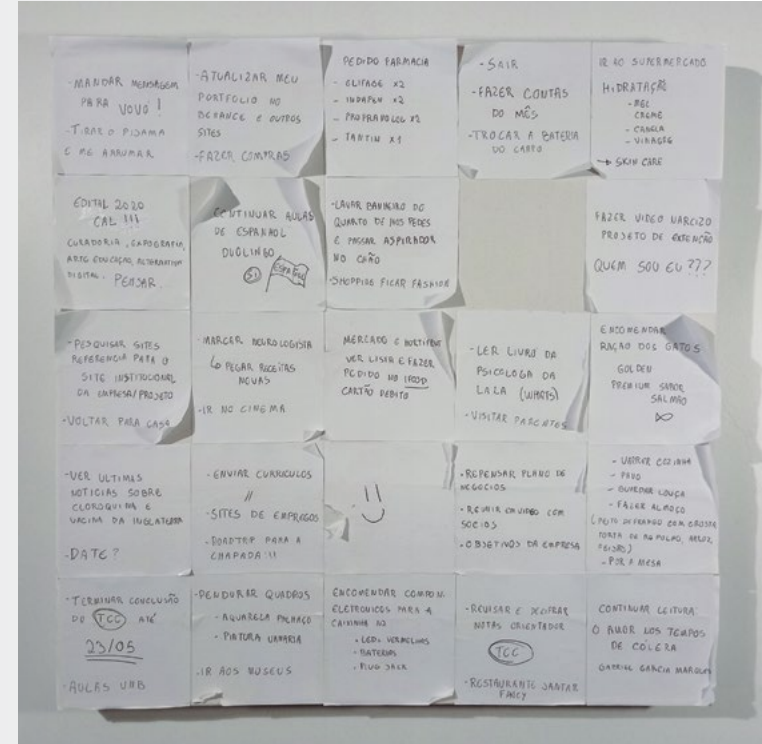 -MANDAR MENSAGEM
PARA VOVÓ!
-TIRAR O PIJAMA
E ME ARRUMAR
-ATUALIZAR MEU
PORTFOLIO NO
BEHANCE E OUTROS
SITES
-FAZER COMPRAS
PEDIDO FARMACIA
- ELIFAGE X2
- INDAPEN X2
- PROPRANOLOL X2
- TANTIN X1
-SAIR
-FAZER CONTAS
DO MÊS
-TROCAR A BATERIA
DO CARRO
IR AO SUPERMERCADO
HIDRATAÇÃO
- MEL
CREME
- CANELA
- VINAGRE
→ SKIN CARE
EDITAL 2020
CAL !!!
CURADORIA, EXPOGRAFIA,
ARTE EDUCAÇÃO,
DIGITAL. PENSAR.
CONTINUAR AULAS
DE ESPANHOL
DUOLINGO
SI
-LAVAR BANHEIRO DO
QUARTO DE HÓSPEDES
E PASSAR ASPIRADOR
NO CHÃO
-SHOPPING FICAR FASHION
FAZER VIDEO NARCIZO
PROJETO DE EXTENÇÃO
QUEM SOU EU ???
-PESQUISAR SITES
REFERENCIA PARA O
SITE INSTITUCIONAL
DA EMPRESA/PROJETO
-VOLTAR PARA CASA
-MARCAR NEUROLOGISTA
↳ PEGAR RECEITAS
NOVAS
-IR NO CINEMA
MERCADO E HORTIFRUTI
VER LISTA E FAZER
PEDIDO NO IFOOD
CARTÃO DEBITO
-LER LIVRO DA
PSICOLOGA DA
LALA (WHATS)
-VISITAR PARENTES
ENCOMENDAR
RAÇÃO DOS GATOS
GOLDEN
PREMIUM SABOR
SALMÃO
-VER ULTIMAS
NOTICIAS SOBRE
CLOROQUINA E
VACINA DA INGLATERRA
-DATE?
-ENVIAR CURRICULOS
//
-SITES DE EMPREGOS
-ROADTRIP PARA A
CHAPADA !!
-REPENSAR PLANO DE
NEGOCIOS
-REUNIR EM VIDEO COM
SOCIOS
-OBJETIVOS DA EMPRESA
- VARRER COZINHA
- PANO
- GUARDAR LOUÇA
- FAZER ALMOÇO
(PEITO DE FRANGO COM CROSTA
TORTA DE REPOLHO, ARROZ,
FEIJÃO)
- POR A MESA
-TERMINAR CONCLUSÃO
DE TCC ATÉ
23/05
-AULAS UNB
-PENDURAR QUADROS
- AQUARELA PALHAÇO
- PINTURA
-IR AOS MUSEUS
ENCOMENDAR COMPON.
ELETRONICOS PARA A
CAIXINHA
- LEDS VERMELHOS
- BATERIAS
- PLUG JACK
-REVISAR E DECIFRAR
NOTAS ORIENTADOR
TCC
-RESTAURANTE JANTAR
FANCY
CONTINUAR LEITURA:
O AMOR NOS TEMPOS
DE CÓLERA
GABRIEL GARCIA MARQUEZ